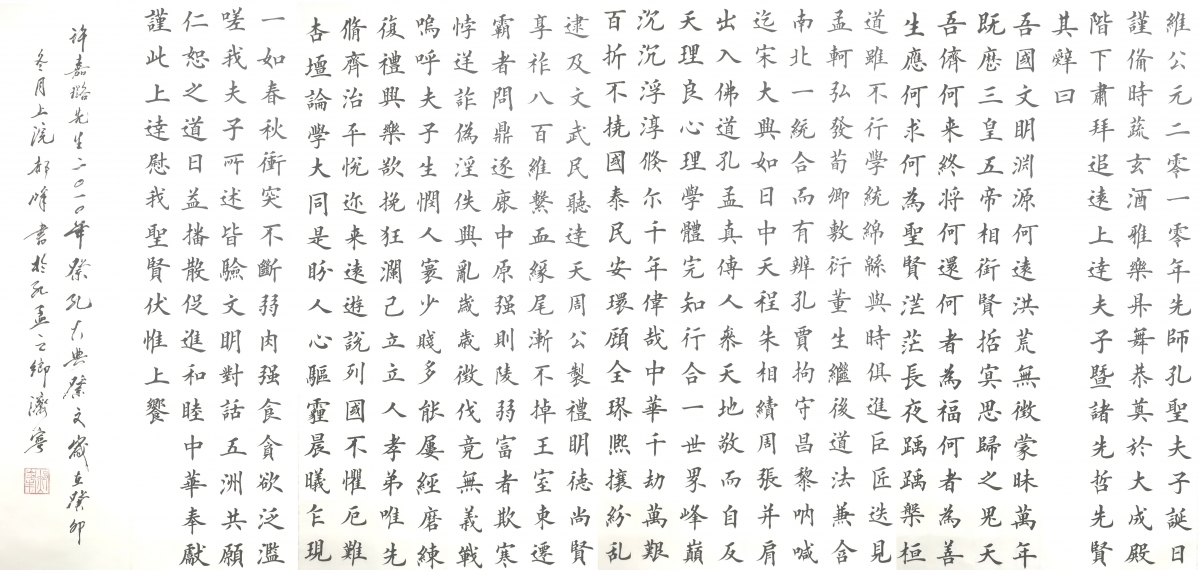 維公元二零一零年先師孔聖夫子誕日
謹俻時蔬玄酒雅樂帛舞恭奠於大成殿
階下肅拜追遠上達夫子暨諸先哲先賢
其辭曰
吾國文明淵源何遠洪荒無徵蒙昧萬年
既歷三皇五帝相銜賢哲冥思歸之鬼天
吾儕何来終將何還何者為福何者為善
生應何求何為聖賢茫茫長夜踽踽槃桓
道雖不行學統綿緜與時俱進巨匠迭見
孟軻弘發荀卿敷衍董生繼後道法兼含
南北一統合而有辨孔賈拘守昌黎吶喊
迄宋大興如日中天程朱相續周張并肩
出入佛道孔孟真傳人參天地敬而自反
天理良心理學體完知行合一世界峰巔
沉沉浮淳倏尓千年偉哉中華千劫萬艱
百折不撓國泰民安環顧全球熙攘紛乱
逮及文武民聽達天周公製禮明徳尚賢
享祚八百維繫血緣尾漸不掉王室東遷
霸者問鼎逐鹿中原强則陵弱富者欺寒
悖逆詐偽淫佚興亂歲歲徵伐竟無義戰
嗚呼夫子生憫人寰少賤多能屢經磨練
復禮興樂欲挽狂瀾己立立人孝弟唯先
脩齊治平悅迩来遠遊說列國不懼厄難
杏壇論學大同是盼人心驅霾晨曦乍現
一如春秋衝突不斷弱肉强食貪欲泛濫
嗟我夫子所述皆驗文明對話五洲共願
仁恕之道日益播散促進和睦中華奉獻
謹此上達慰我聖賢伏惟上饗
許嘉璐先生二〇一〇年祭孔大典祭文歲在癸卯
冬月上浣郝峰書於孔孟之鄉濟寧